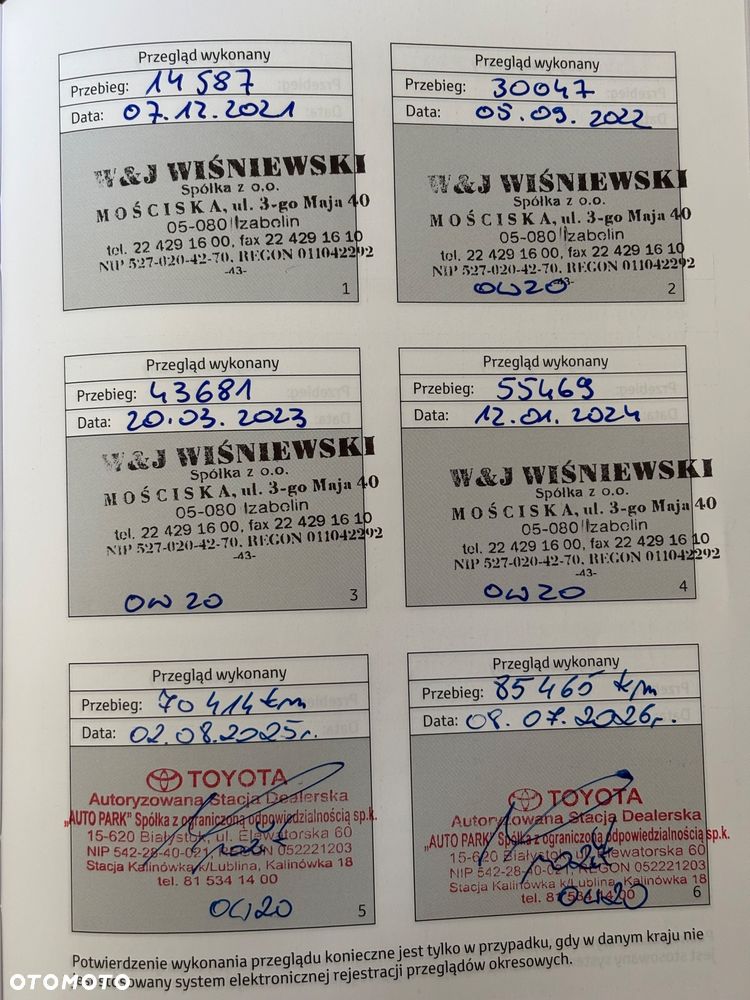 Przegląd wykonany
Przebieg: 14 587
Data: 07.12.2021
W&J WIŚNIEWSKI
Spółka z o.o.
MOŚCISKA, ul. 3-go Maja 40
05-080 Izabelin
tel. 22 429 16 00, fax 22 429 16 10
NIP 527-020-42-70, REGON 011042292
-43-
1
Przegląd wykonany
Przebieg: 30047
Data: 05.09.2022
W&J WIŚNIEWSKI
Spółka z o.o.
MOŚCISKA, ul. 3-go Maja 40
05-080 Izabelin
tel. 22 429 16 00, fax 22 429 16 10
NIP 527-020-42-70, REGON 011042292
-43-
0W20
2
Przegląd wykonany
Przebieg: 43681
Data: 20.03.2023
W&J WIŚNIEWSKI
Spółka z o.o.
MOŚCISKA, ul. 3-go Maja 40
05-080 Izabelin
tel. 22 429 16 00, fax 22 429 16 10
NIP 527-020-42-70, REGON 011042292
-43-
0W20
3
Przegląd wykonany
Przebieg: 55469
Data: 12.01.2024
W&J WIŚNIEWSKI
Spółka z o.o.
MOŚCISKA, ul. 3-go Maja 40
05-080 Izabelin
tel. 22 429 16 00, fax 22 429 16 10
NIP 527-020-42-70, REGON 011042292
-43-
0W20
4
Przegląd wykonany
Przebieg: 70 414 km
Data: 02.08.2025r.
TOYOTA
Autoryzowana Stacja Dealerska
„AUTO PARK" Spółka z ograniczoną odpowiedzialnością sp.k.
15-620 Białystok, ul. Elewatorska 60
NIP 542-28-40-021, REGON 052221203
Stacja Kalinówka k/Lublina, Kalinówka 18
tel. 81 534 14 00
0W20
5
Przegląd wykonany
Przebieg: 85 465 km
Data: 08.07.2026r.
TOYOTA
Autoryzowana Stacja Dealerska
„AUTO PARK" Spółka z ograniczoną odpowiedzialnością sp.k.
15-620 Białystok, ul. Elewatorska 60
NIP 542-28-40-021, REGON 052221203
Stacja Kalinówka k/Lublina, Kalinówka 18
tel. 81 534 14 00
0W20
6
Potwierdzenie wykonania przeglądu konieczne jest tylko w przypadku, gdy w danym kraju nie
jest stosowany system elektronicznej rejestracji przeglądów okresowych.
OTOMOTO